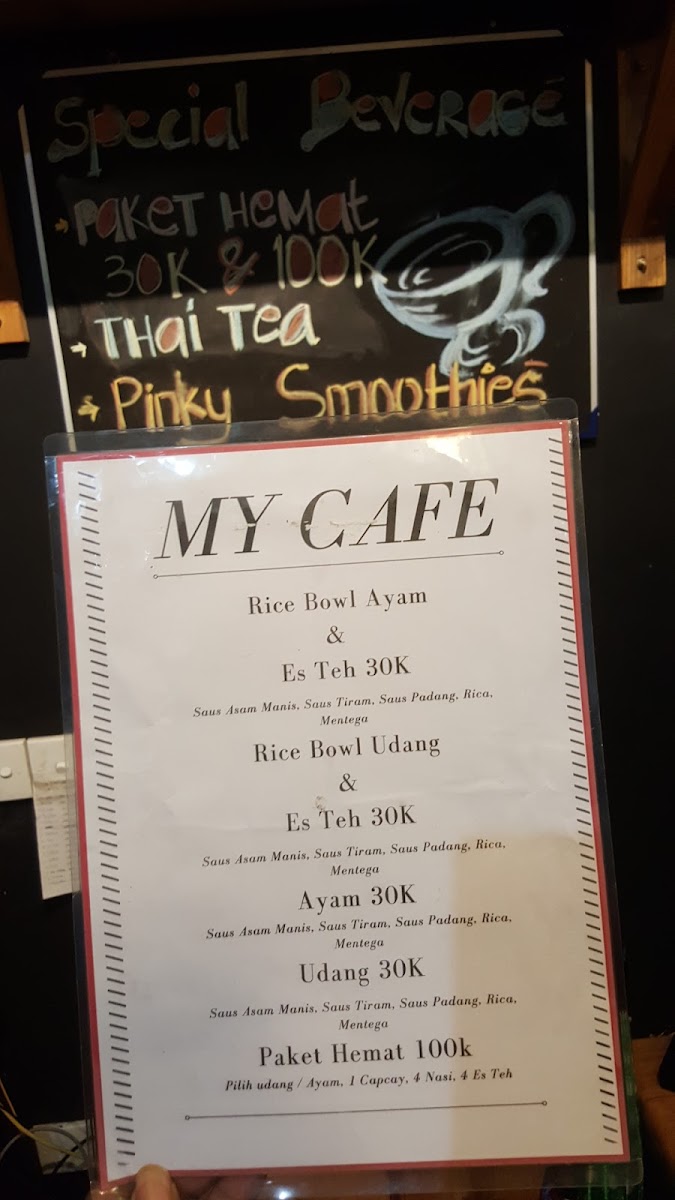 Special Beverage
PAKET HEMAT
30K & 100K
THAI TEA
Pinky Smoothies
MY CAFE
Rice Bowl Ayam
&
Es Teh 30K
Saus Asam Manis, Saus Tiram, Saus Padang, Rica,
Mentega
Rice Bowl Udang
&
Es Teh 30K
Saus Asam Manis, Saus Tiram, Saus Padang, Rica,
Mentega
Ayam 30K
Saus Asam Manis, Saus Tiram, Saus Padang, Rica,
Mentega
Udang 30K
Saus Asam Manis, Saus Tiram, Saus Padang, Rica,
Mentega
Paket Hemat 100k
Pilih udang / Ayam, 1 Capcay, 4 Nasi, 4 Es Teh